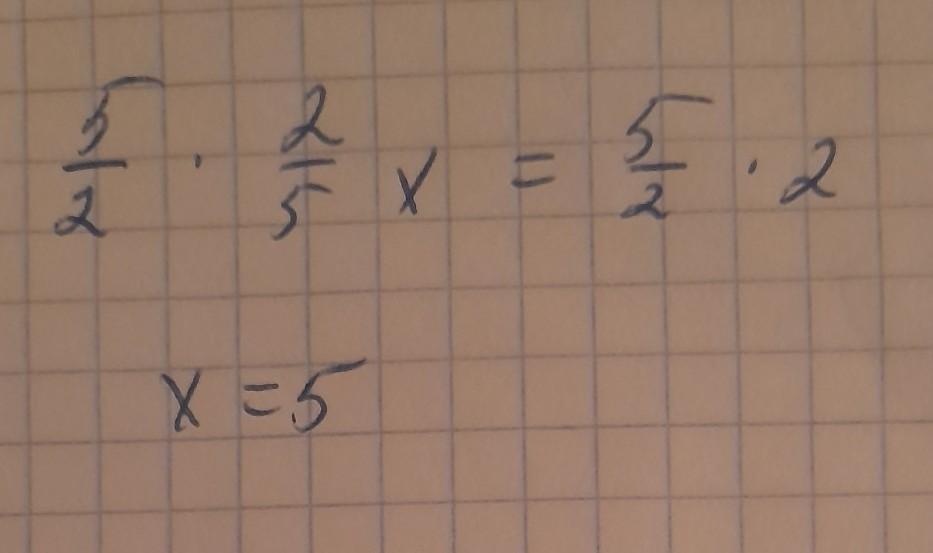 5/2 · 2/5 x = 5/2 · 2
x = 5